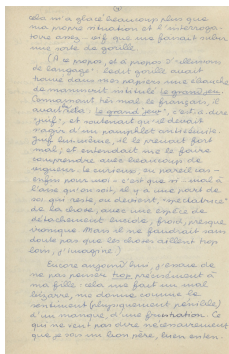 cela m'a glacé beaucoup plus que
ma propre situation et l'interroga-
toire assez vif que me faisait subir
une sorte de gorille
(À ce propos, et à propos d'"illusions
de langage" ledit gorille avait
trouvé dans mes papiers une ébauche
de manuscrit intitulé Le grand jeu.
Connaissant très mal le français, il
avait lu : Le grand Juif, c'est-à-dire
"juif", et soutenait qu'il devait
s'agir d'un pamphlet antisémite.
Juif lui-même, il le prenait fort
mal, et entendait me le faire
comprendre avec beaucoup de
vigueur. Le curieux, en pareil cas
enfin pour moi c'est que si mal à
l'aise qu'on soit, il y a une part de
soi qui reste, ou devient, "spectatrice"
de la chose, avec une espèce de
détachement amusé, froid, presque
ironique. Mais il ne faudrait sans
doute pas que les choses aillent trop
loin, j'imagine)
Encore aujourd'hui j'évite de
me pas penser trop précisément à
ma fille : cela me fait un mal
bizarre, me donne comme le
sentiment (physiquement pénible)
d'un manque, d'une frustration. Ce
qui ne veut pas dire nécessairement
que je sois un bon père, bien enten-